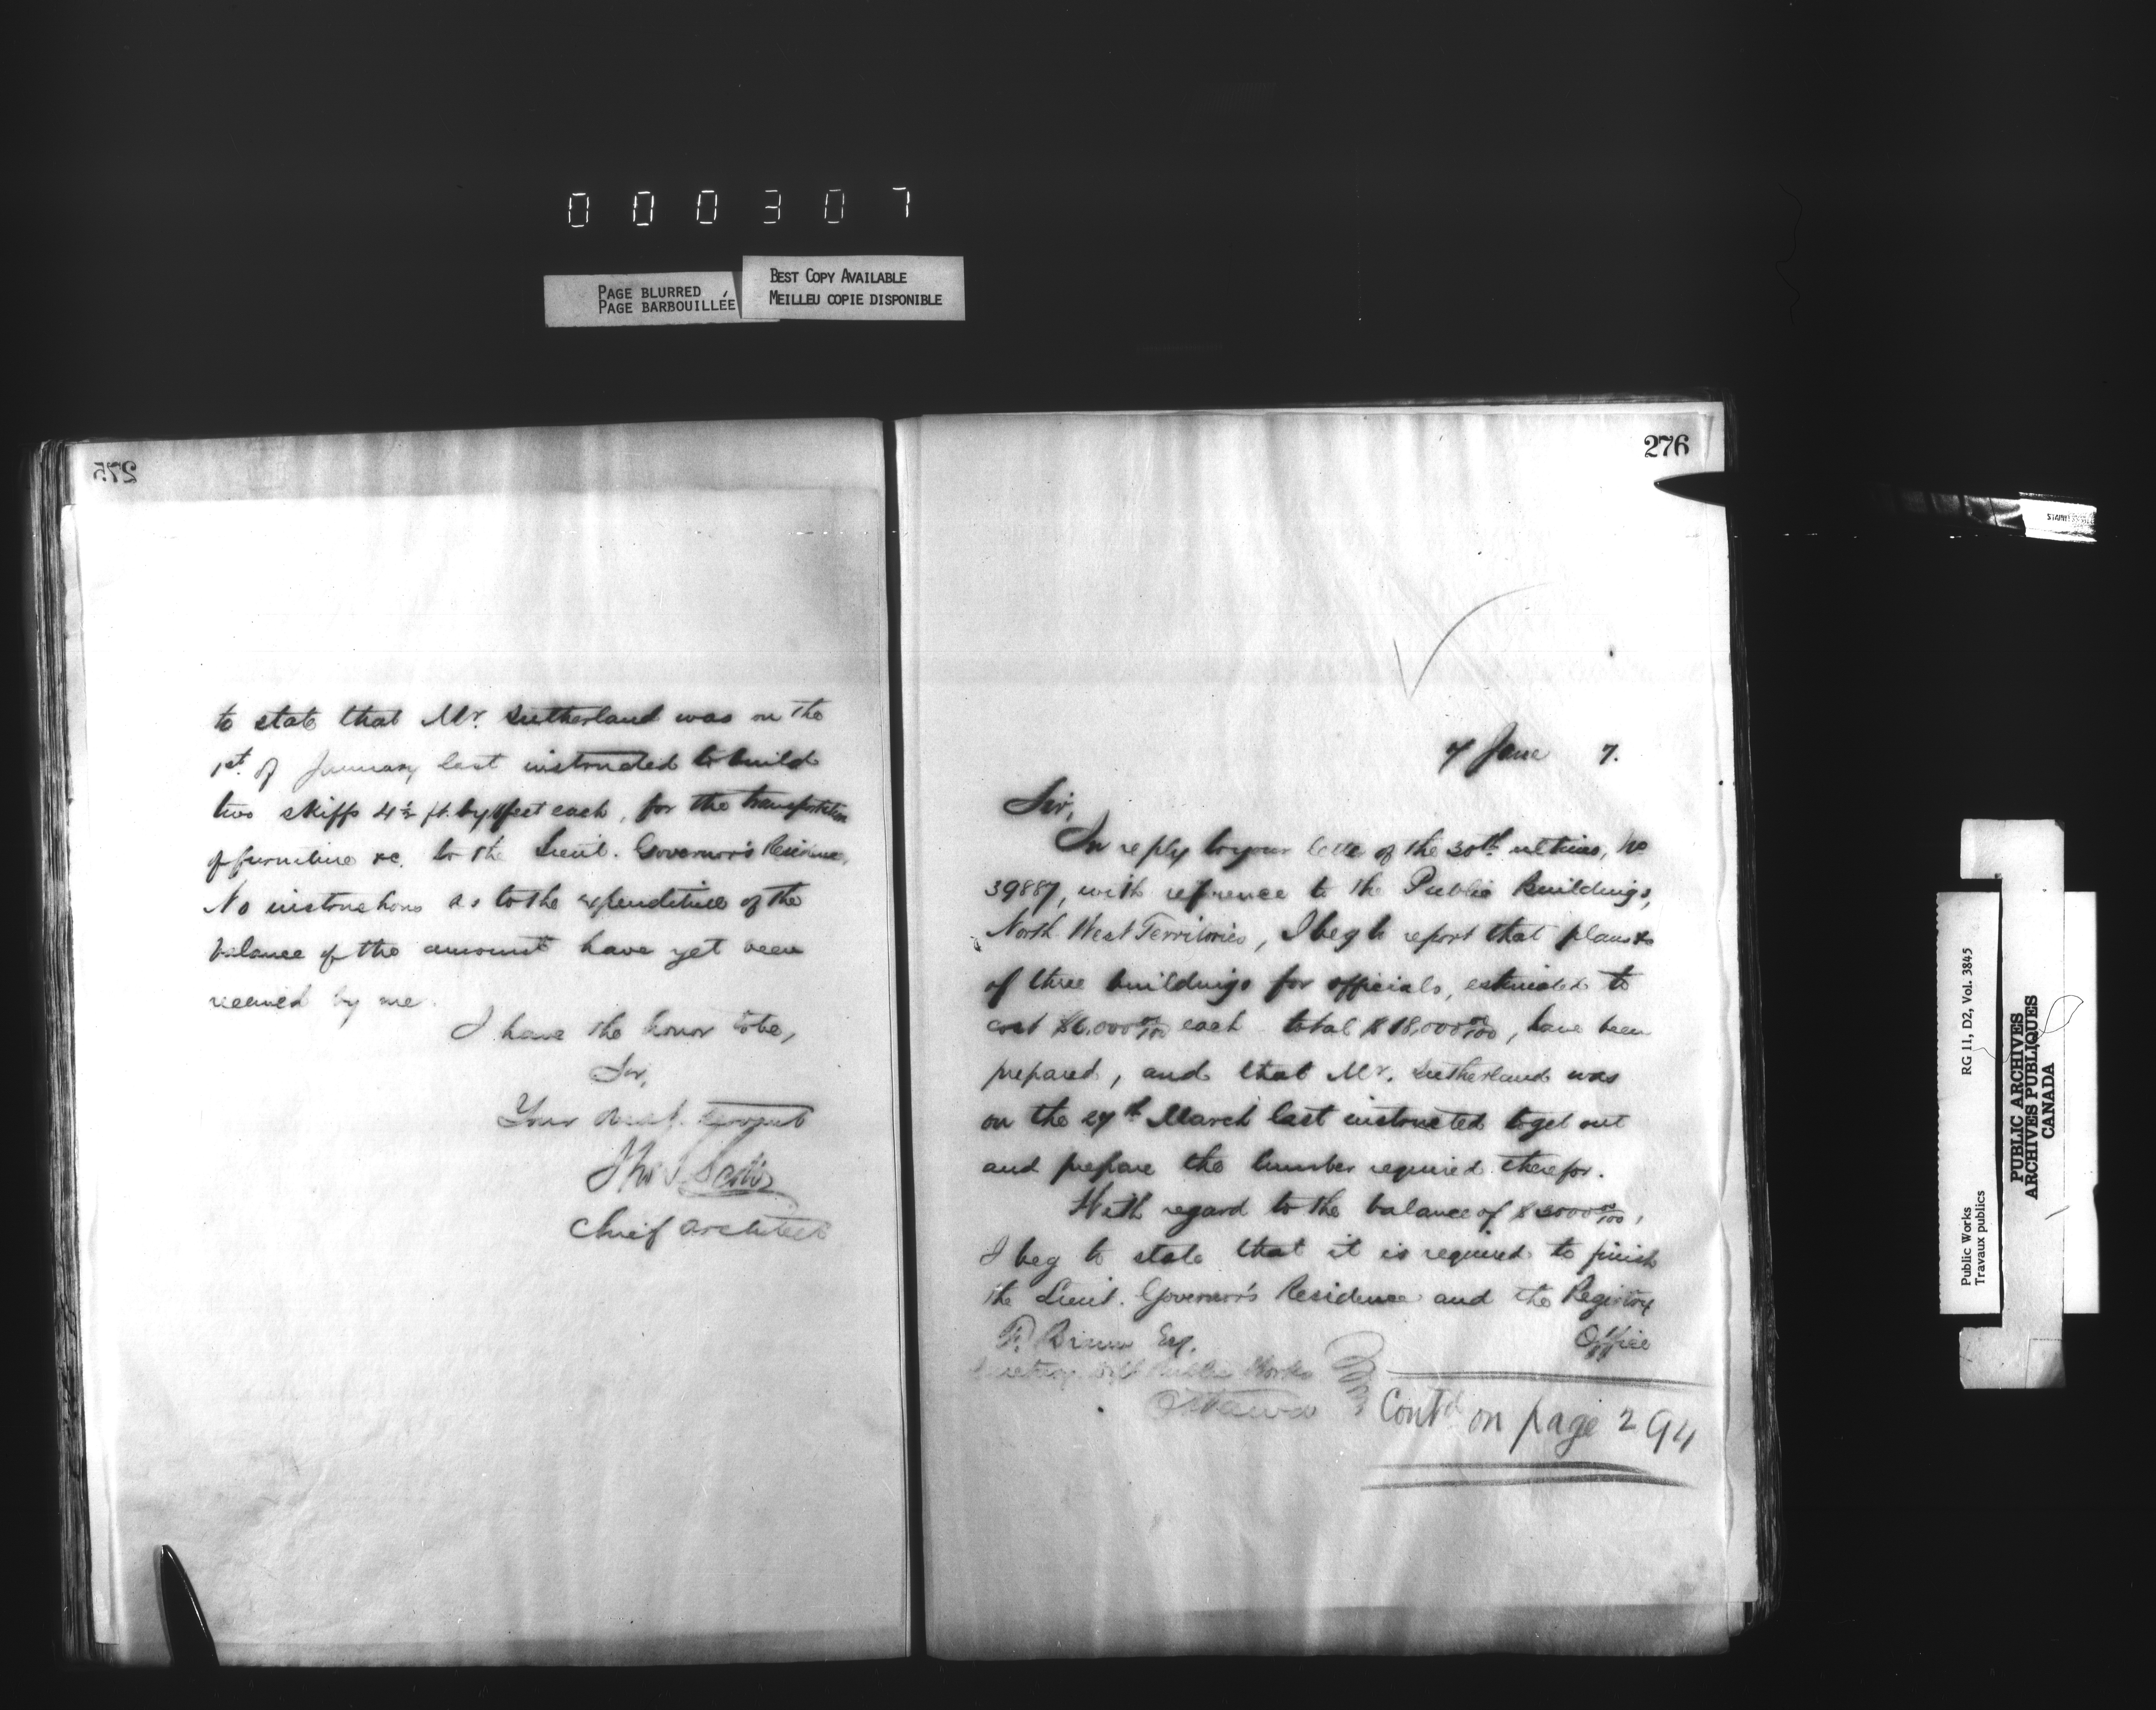 000307
PAGE BLURRED
PAGE BARBOUILLÉE
BEST COPY AVAILABLE
MEILLEU COPIE DISPONIBLE
275
to state that Mr. Sutherland was on the
1st. of January last instructed to build
two skiffs 4½ ft. by feet each, for the transportation
of furniture &c. to the Lieut. Governor's Residence,
No instructions as to the expenditure of the
balance of the amount have yet been
received by me.
I have the honor to be,
Sir,
Your obedt. servant
Thos S Scott
Chief Architect
276
7 June 7.
Sir,
In reply to your letter of the 30th. ultimo, No
39887, with reference to the Public Buildings,
North West Territories, I beg to report that plans &c
of three buildings for officials, estimated to
cost $6,000 00/100 each total $18,000 00/100, have been
prepared, and that Mr. Sutherland was
on the 27th March last instructed to get out
and prepare the lumber required therefor.
With regard to the balance of $ 00/100,
I beg to state that it is required to finish
the Lieut. Governor's Residence and the Registry
Office
F. Braun Esq.
Secretary Dept Public Works
Ottawa
Contd on page 294
STAINLESS
Public Works
Travaux publics
RG 11, D2, Vol. 3845
PUBLIC ARCHIVES
ARCHIVES PUBLIQUES
CANADA